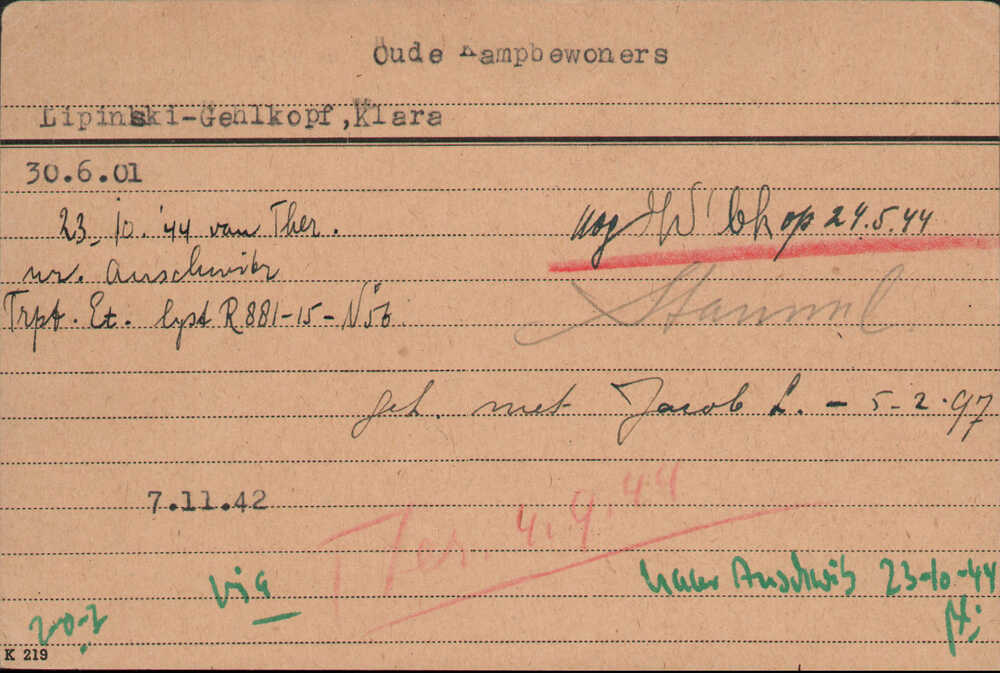 Oude Kampbewoners
Lipinski-Gehlkopf,Klara
30.6.01
23. 10. '44 van Ther.
nr. Auschwitz
Trpt. Et. lyst R 881-15-
nog op 24.5.44
Stamml.
geh. met Jacob L. - 5-2-97
7.11.42
Ther. 4.9.44
via
naar Auschwitz 23-10-44
K 219